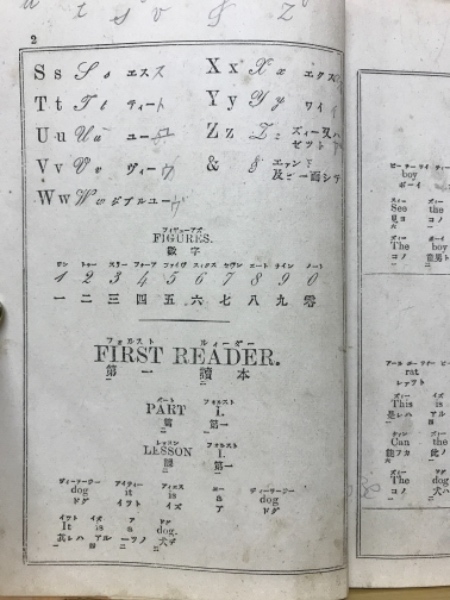 2
S s S s エスス
X x X x エクス
T t T t ティート
Y y Y y ワイイ
U u U u ユー
Z z Z z ズィー又ハ
ゼット
V v V v ヴィー
& & エァンド
及ビ
W w W w ダブルユー
FIGURES.
數字
ワン トゥー スリー フォーア ファイヴ スィクス セヴン エート ナイン ノート
1 2 3 4 5 6 7 8 9 0
一 二 三 四 五 六 七 八 九 零
フォルスト ルィーダー
FIRST READER.
第一 讀本
パート フォルスト
PART I.
第一
レッスン フォルスト
LESSON I.
第一
ディーオージー アイティー アィエス エー ディーオージー
dog it is a dog
ドグ イット イズ ア ドグ
イット イズ ア ドグ
It is a dog.
其レハ アル 一ツノ 犬デ
boy
ボーイ
See the
見ヨ コノ
The boy
コノ
rat
レァット
This is
是レハ アル
Can the
The dog
コノ 犬ハ